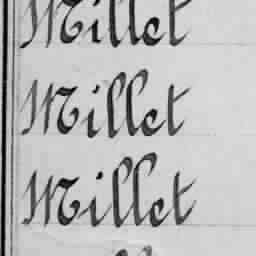 Millet
Millet
Millet